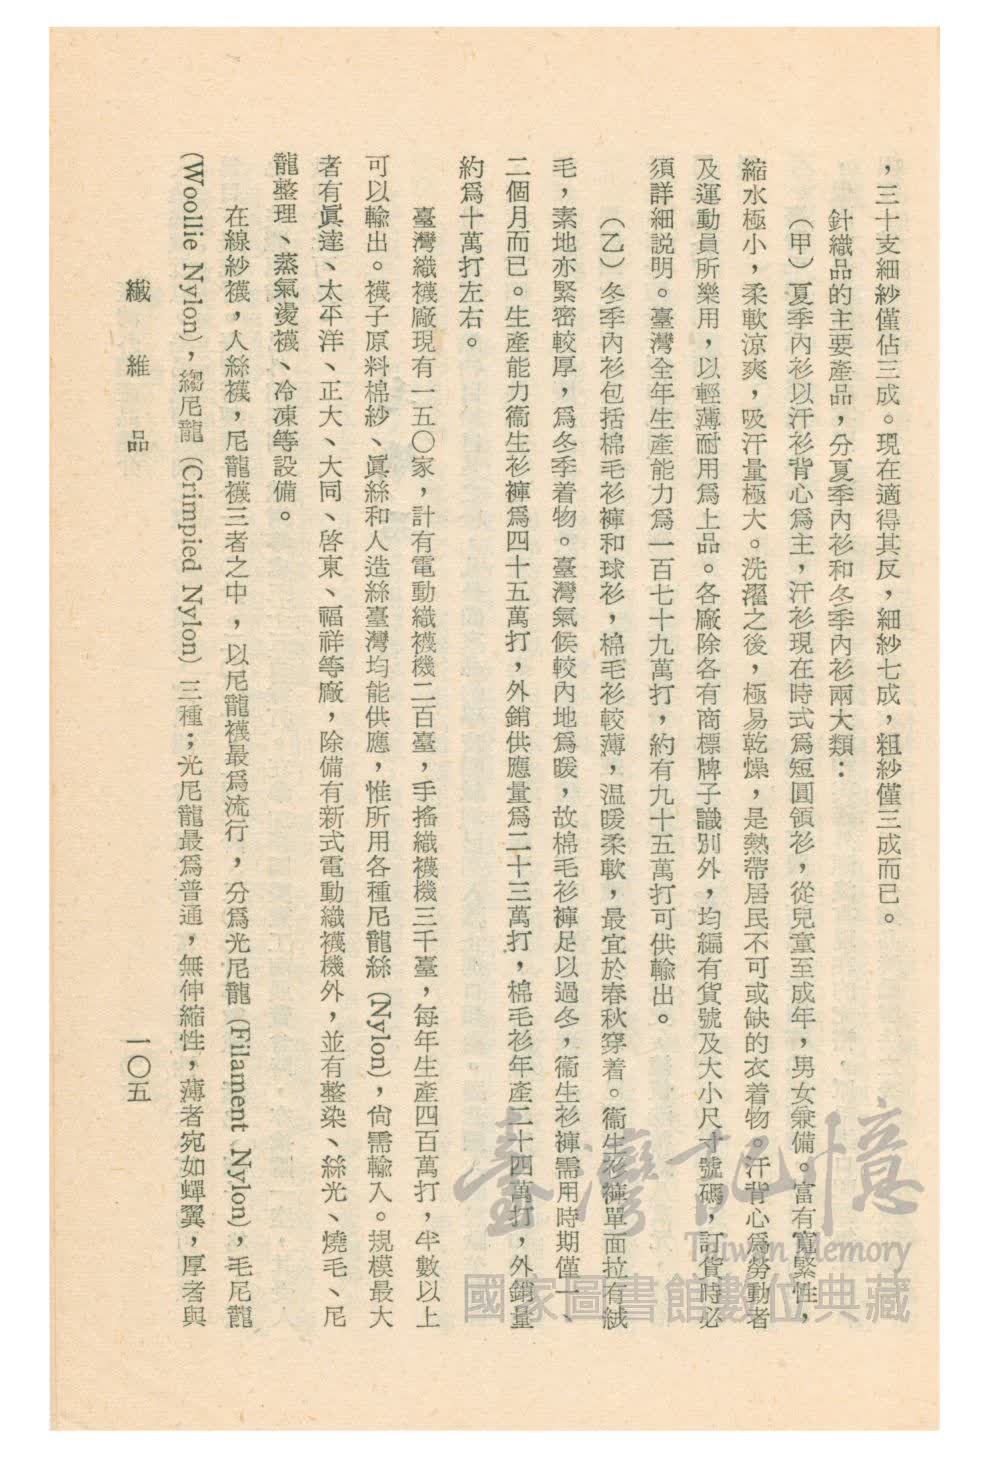 ，三十支細紗僅佔三成。現在適得其反，細紗七成，粗紗僅三成而已。
針織品的主要產品，分夏季內衫和冬季內衫兩大類：
（甲）夏季內衫以汗衫背心爲主，汗衫現在時式爲短圓領衫，從兒童至成年，男女兼備。富有寬緊性，
縮水極小，柔軟涼爽，吸汗量極大。洗濯之後，極易乾燥，是熱帶居民不可或缺的衣着物。汗背心爲勞動者
及運動員所樂用，以輕薄耐用爲上品。各廠除各有商標牌子識別外，均編有貨號及大小尺寸號碼，訂貨時必
須詳細説明。臺灣全年生產能力爲一百七十九萬打，約有九十五萬打可供輸出。
（乙）冬季內衫包括棉毛衫褲和球衫，棉毛衫較薄，温暖柔軟，最宜於春秋穿着。衞生衫褲單面拉有絨
毛，素地亦緊密較厚，爲冬季着物。臺灣氣候較內地爲暖，故棉毛衫褲足以過冬，衞生衫褲需用時期僅一、
二個月而已。生產能力衞生衫褲爲四十五萬打，外銷供應量爲二十三萬打，棉毛衫年產二十四萬打，外銷量
約爲十萬打左右。
臺灣織襪廠現有一五〇家，計有電動織襪機二百臺，手搖織襪機三千臺，每年生產四百萬打，半數以上
可以輸出。襪子原料棉紗、眞絲和人造絲臺灣均能供應，惟所用各種尼龍絲（Nylon），尙需輸入。規模最大
者有眞達、太平洋、正大、大同、啓東、福祥等廠，除備有新式電動織襪機外，並有整染、絲光、燒毛、尼
龍整理、蒸氣燙襪、冷凍等設備。
在線紗襪，人絲襪，尼龍襪三者之中，以尼龍襪最爲流行，分爲光尼龍（Filament Nylon），毛尼龍
（Woollie Nylon），縐尼龍（Crimpied Nylon）三種；光尼龍最爲普通，無伸縮性，薄者宛如蟬翼，厚者與
纖維品
一〇五
臺灣記憶
Taiwan Memory
國家圖書館數位典藏